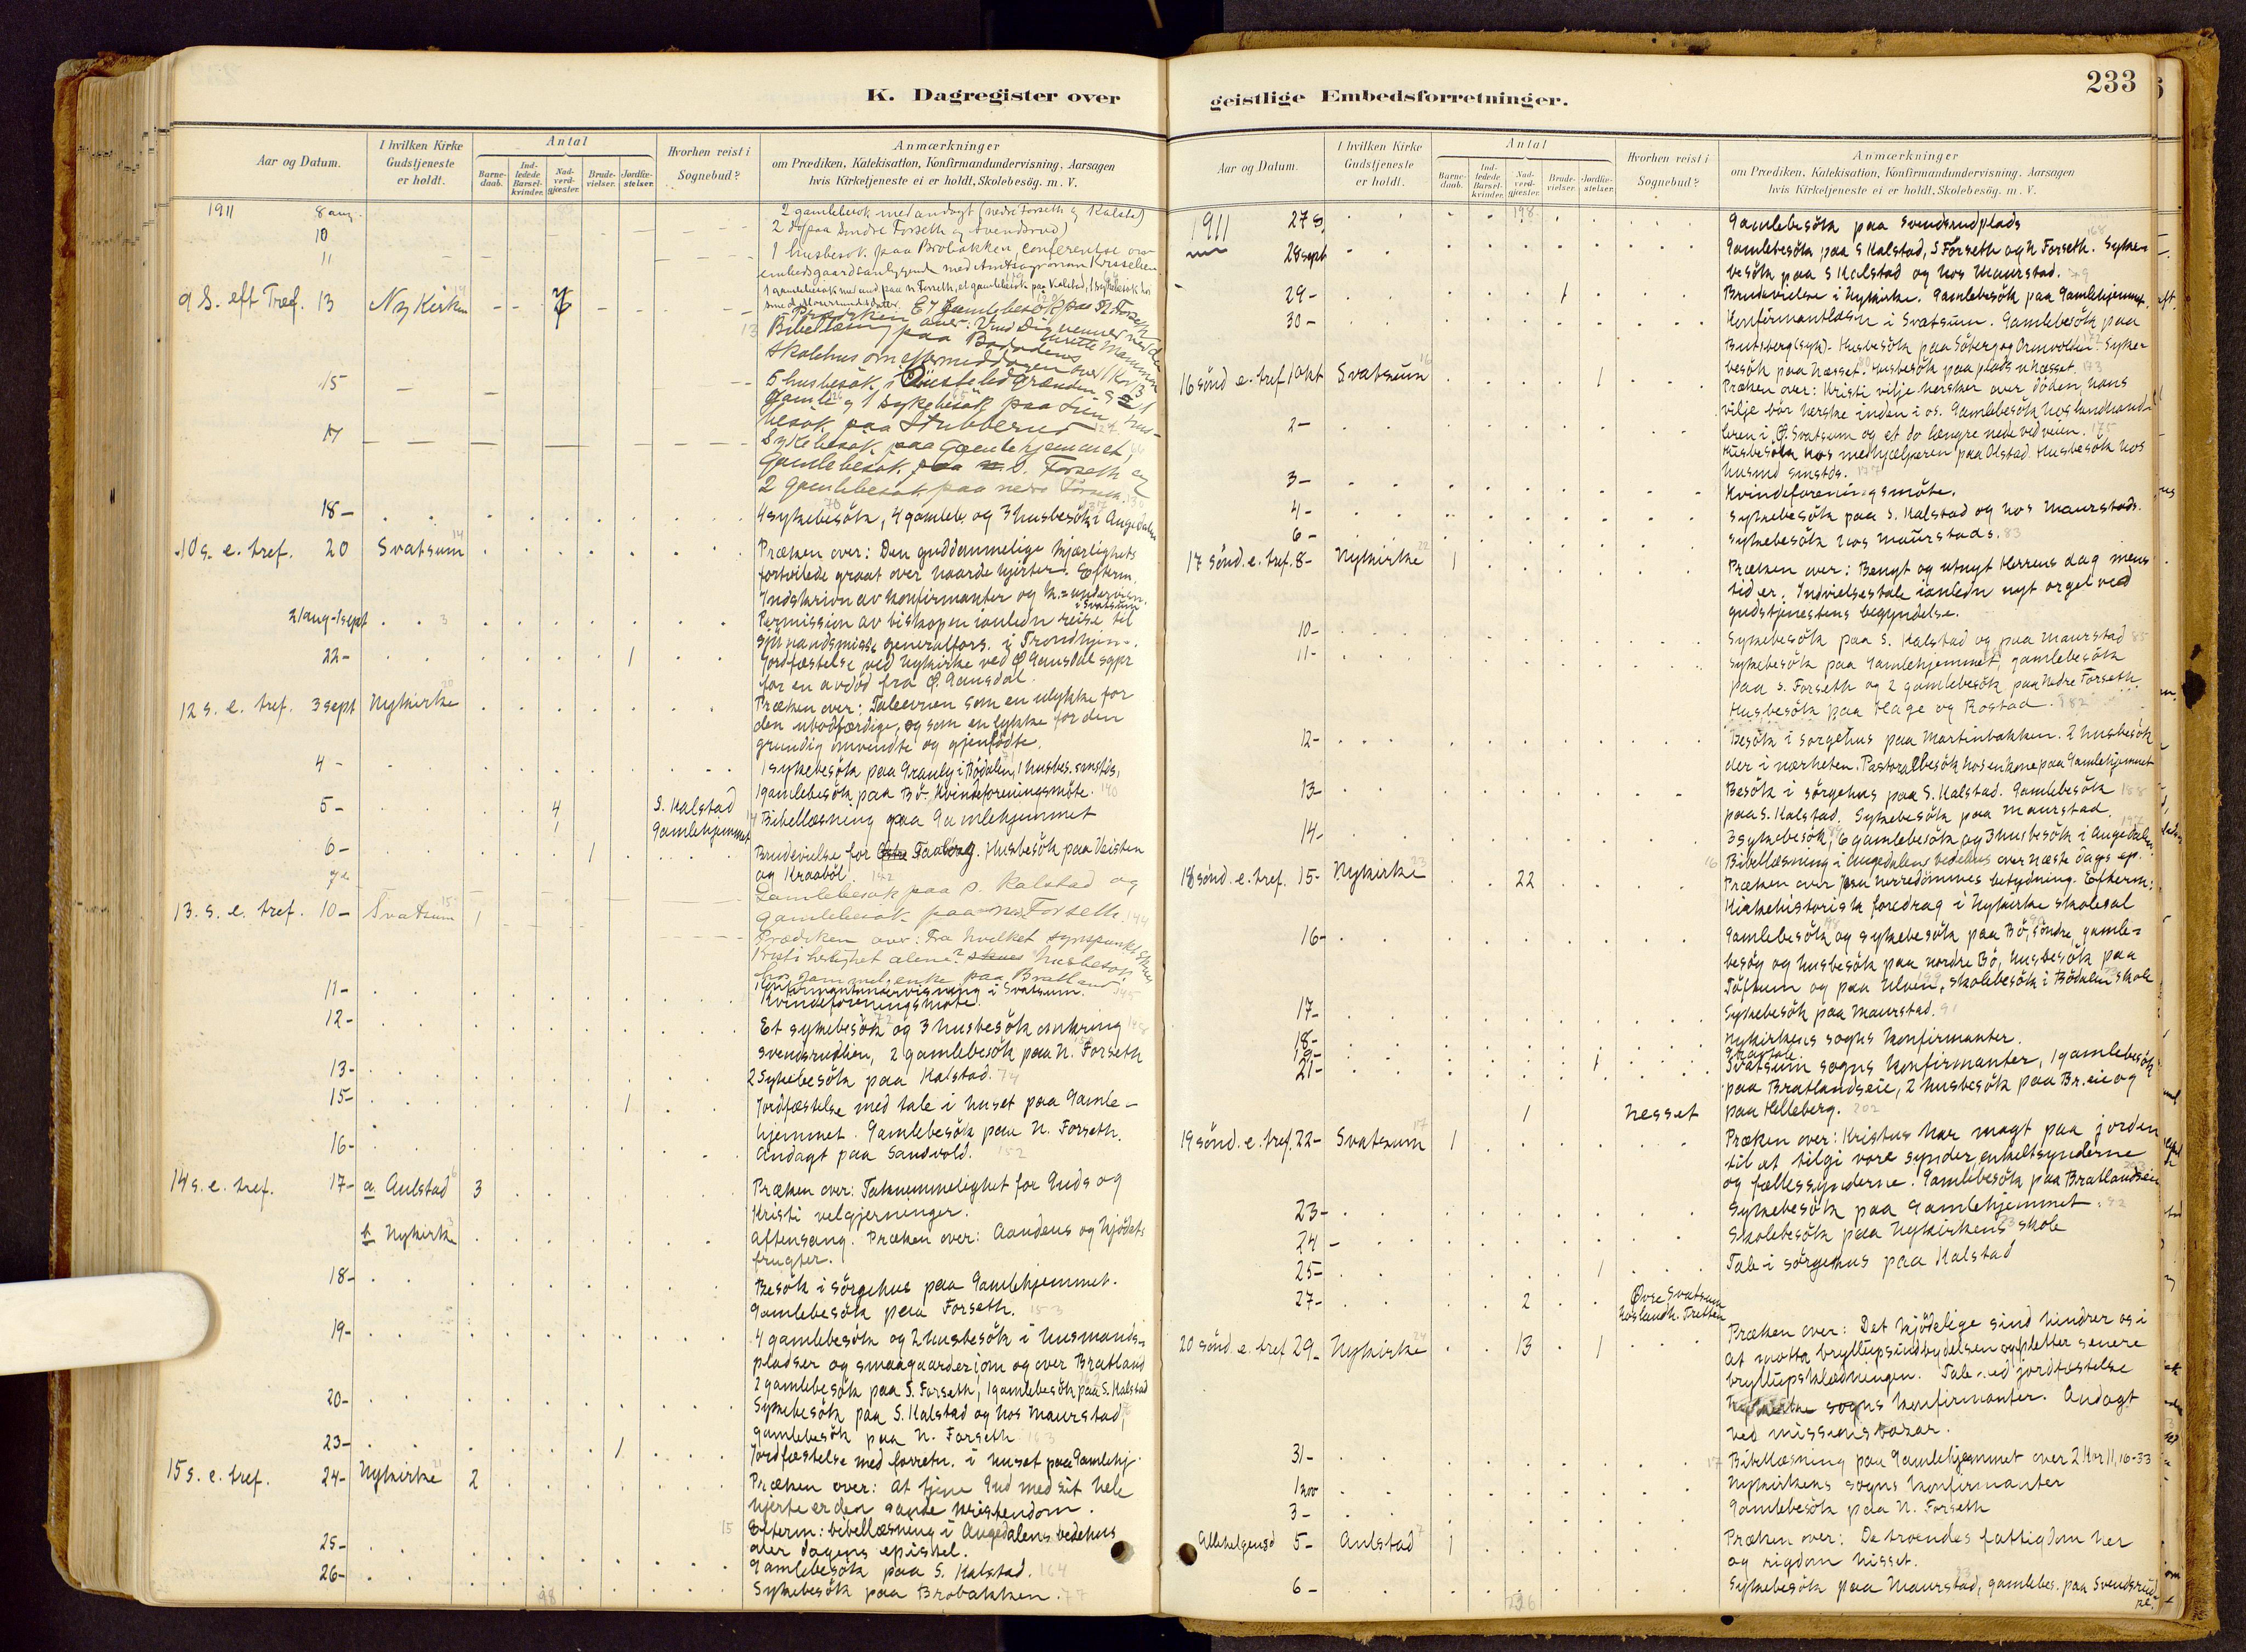 K. Dagregister over
Aar og Datum.
I hvilken Kirke Gudstjeneste er holdt.
Antal
Barne-daab.
Ind-ledede Barsel-kvinder.
Nad-verd-gjæster.
Brude-vielser.
Jordfæ-stelser.
Hvorhen reist i Sognebud?
Anmærkninger
om Prædiken, Katekisation, Konfirmandundervisning. Aarsagen
hvis Kirketjeneste ei er holdt, Skolebesög. m. V.
1911 8 aug. 2 gamlebesøk med andagt (nedre Forseth og Kalstad)
10 2 do paa Søndre Forseth og Svendsrud)
11 1 husbesøk paa Brobakken, conferentse om
embedsgaardsanliggende med
9 S. eft Tref. 13 Nykirken 7
Bibellæsning paa Bødalens
skolehus om eftermiddagen over 1 Kor 13
15 5 husbesøk i
gamle og 1 sykebesøk paa
besøk paa Stubberud
17 Sykebesøk paa Gamlehjemmet
Gamlebesøk paa S. Forseth og
2 gamlebesøk paa nedre Forseth
18- 4 sykebesök, 4 gamleb. og 3 husbesök i Augedalen
10 s. e. tref. 20 Svatsum 14 Præken over: Den guddommelige kjærlighets
fortvilede graat over haarde hjerter. Efterm.
Indskrivn av konfirmanter og k.undervisn.
i Svatsum
21 aug-1 sept Permission av biskopen i anledn reise til
sjömandsmiss. generalfors. i Trondhjem.
22- 1 Jordfæstelse ved Nykirke ved Ø. Gausdal sgpr
for en avdöd fra Ø. Gausdal.
12 s. e. tref. 3 sept Nykirke 20 Præken over: Taleevnen som en ulykke for
den ubodfærdige, og som en lykke for den
grundig omvendte og gjenfödte.
4- 1 sykebesök paa Granly i Bödalen, 1 husbes. smstds,
1 gamlebesök paa Bö. Kvindeforeningsmöte. 140
5- 4 S. Kalstad
1 Gamlehjemmet Bibellæsning paa Gamlehjemmet
6- 1 Brudevielse for Taaborg. Husbesök paa Veisten
og Kraaböl 142
7- Gamlebesøk paa S. Kalstad og
gamlebesøk paa N. Forseth. 144
13. s. e. tref. 10- Svatsum 15 1 Prædiken over: Fra hvilket synspunkt skues
Kristi herlighet alene? Husbesøk
hos gammel enke paa Bratland
11- Konfirmantundervisning i Svatsum. 145
Kvindeforeningsmøte
12- Et sykebesök og 3 husbesök omkring 148
Svendsrudlien, 2 gamlebesök paa N. Forseth
13- 2 Sykebesök paa Kalstad. 74
15- 1 Jordfæstelse med tale i huset paa Gamle-
hjemmet. Gamlebesök paa N. Forseth.
16- Andagt paa Sandvold. 152
14 s. e. tref. 17- a. Aulstad 6 3 Præken over: Taknemmelighet for Guds og
Kristi velgjerninger.
b. Nykirke Aftensang. Præken over: Aandens og kjödets
frugter.
18- Besök i sörgehus paa Gamlehjemmet.
Gamlebesök paa Forseth. 153
19- 4 gamlebesök og 2 husbesök i husmands-
pladser og smaagaarder om og over Bratland
2 gamlebesök paa S. Forseth, 1 gamlebesök paa S. Kalstad
20- Sykebesök paa S. Kalstad og hos Maurstad,
gamlebesök paa N. Forseth 163
23- 1 Jordfæstelse med forretn. i huset paa Gamlehj.
15 s. e. tref. 24- Nykirke 21 2 Præken over: At tjene Gud med sit hele
hjerte er den sande kristendom.
15 Efterm: bibellæsning i Augedalens bedehus
over dagens epistel.
25- Gamlebesök paa S. Kalstad. 164
26- Sykebesök paa Brobakken. 77
98
geistlige Embedsforretninger.
233
Aar og Datum.
I hvilken Kirke Gudstjeneste er holdt.
Antal
Barne-daab.
Ind-ledede Barsel-kvinder.
Nad-verd-gjæster.
Brude-vielser.
Jordfæ-stelser.
Hvorhen reist i Sognebud?
Anmærkninger
om Prædiken, Katekisation, Konfirmandundervisning. Aarsagen
hvis Kirketjeneste ei er holdt, Skolebesög. m. V.
1911 27 s. 198 Gamlebesök paa Svendsrudplads
28 sept Gamlebesök paa S Kalstad, S Forseth og N Forseth. 168 Syke-
besök paa S Kalstad og hos Maurstad. 79
29- 1 Brudevielse i Nykirke. Gamlebesök paa Gamlehjemmet.
30- Konfirmantlæsn i Svatsum. Gamlebesök paa
Butsberg (syk). Husbesök paa Söberg og Ormvolden. Syke-
besök paa Næsset. Husbesök paa plads u Næsset. 173
16 sönd e. tref. 1 okt Svatsum 16 1 Præken over: Kristi vilje hersker over döden, hans
vilje bör herske inden i os. Gamlebesök hos landhand-
2- leren i Ø. Svatsum og et do længre nede ved veien. 175
Husbesök hos medhjælperen paa Olstad. Husbesök hos
husmd smstds. 177
3- Kvindeforeningsmöte.
4- Sykebesök paa S. Kalstad og hos Maurstads.
6- Sykebesök hos Maurstads. 83
17 sönd. e. tref. 8- Nykirke 22 1 Præken over: Benyt og utnyt Herrens dag mens
tid er. Indvielsestale i anledn nyt orgel ved
gudstjenestens begyndelse.
10- Sykebesök paa S. Kalstad og paa Maurstad 85
11- Sykebesök paa Gamlehjemmet, gamlebesök
paa S. Forseth og 2 gamlebesök paa Nedre Forseth
Husbesök paa Hage og Rostad. 182
12- Besök i sorgehus paa Martinbakken. 2 husbesök
der i nærheten. Pastoralbesök hos en kone paa Gamlehjemmet
13- Besök i sörgehus paa S. Kalstad. Gamlebesök 188
paa S. Kalstad. Sykebesök paa Maurstad.
14- 3 sykebesök, 6 gamlebesök og 3 husbesök i Augedalen 197
16 Bibellæsning i Augedalens bedehus over næste dags ep.
18 sönd. e. tref. 15- Nykirke 23 22 Præken over Jesu herredömmes betydning. Efterm:
Kirkehistorisk foredrag i Nykirke skolesal
16- Gamlebesök og sykebesök paa Bö, söndre, gamle-
besög og husbesök paa nordre Bö, husbesök paa
Töftum og paa Ulven, skolebesök i Bödalen skole
17- Sykebesök paa Maurstad. 91
18- Nykirkens sogns konfirmanter.
19- 1 Gravtale.
21- Svatsum sogns konfirmanter, 1 gamlebesök
paa Bratlandseie, 2 husbesök paa Br.eie og
1 Nesset paa Helleberg. 202
19 sönd. e. tref. 22- Svatsum 17 1 Præken over: Kristus har magt paa jorden
til at tilgi vore synder, enkeltsynderne
og fællessynderne. Gamlebesök paa Bratlandseie
23- Sykebesök paa Gamlehjemmet. 92
24- Skolebesök paa Nykirkens skole
25- 1 Tale i sörgehus paa Kalstad
27- 2 Øvre Svatsum
hos landh. Tretten
20 sönd. e. tref 29- Nykirke 24 13 1 Præken over: Det kjödelige sind hindrer os i
at motta bryllupsindbydelsen og pletter senere
bryllupsklædningen. Tale ved jordfæstelse
sogns konfirmanter. Andagt
ved missionsbasar.
31- 17 Bibellæsning paa Gamlehjemmet over 2 Kor 11, 16-33
1 nov Nykirkens sogns konfirmanter
3- Gamlebesök paa N. Forseth
Allehelgensd 5- Aulstad 7 1 Præken over: De troendes fattigdom her
og rigdom hisset.
6- Sykebesök paa Maurstad, gamlebes. paa Svendsrud
pl.
236